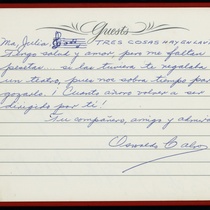 Guests
Ma. Julia TRES COSAS HAY EN LA VI
Tengo salud y amor pero me faltan
pesetas - si las tuviera te regalaba
un teatro, pues nos sobra tiempo para
gozarlo. ¡ Cuanto añoro volver a ser
dirigido por ti!
Tu compañero, amigo y admira
Oswaldo Calvo